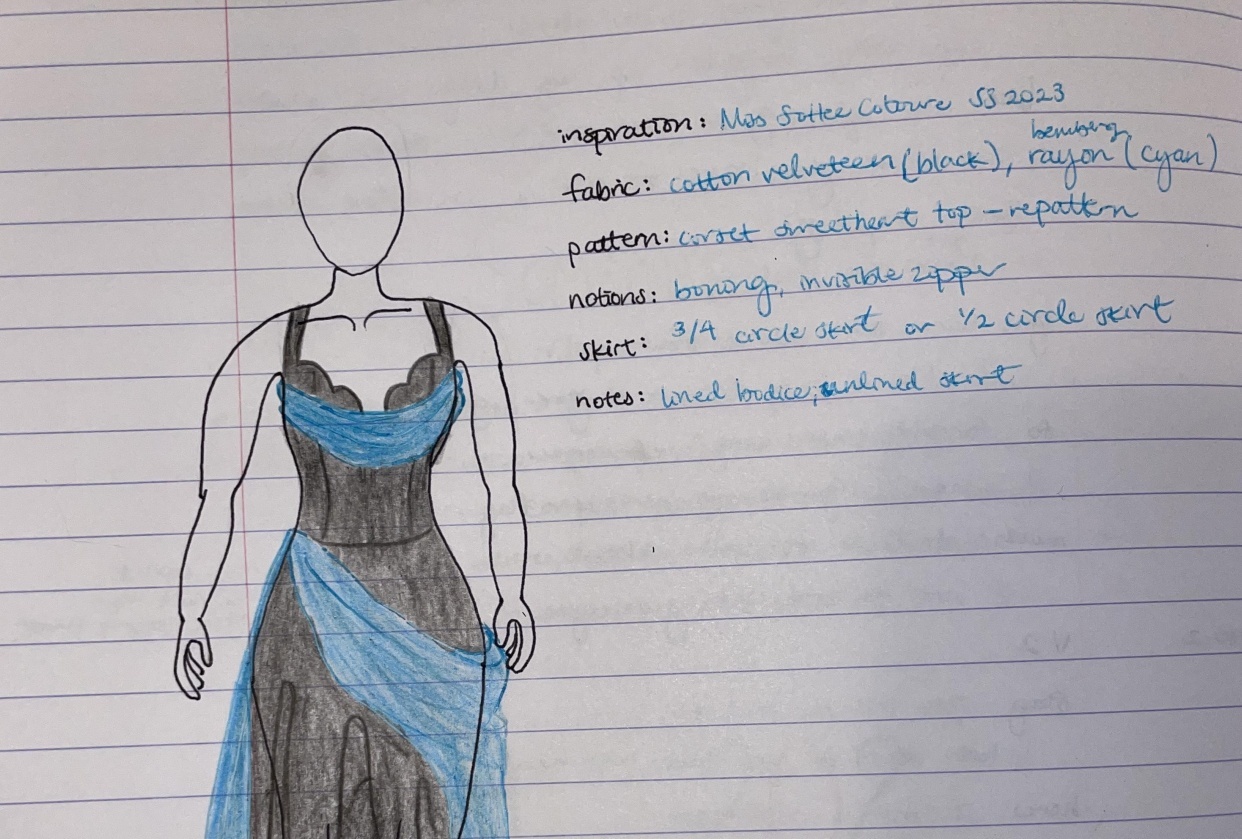 inspiration: Miss Sohee Couture SS 2023
bemberg
fabric: cotton velveteen (black), rayon (cyan)
pattern: corset sweetheart top – repattern
notions: boning, invisible zipper
skirt: 3/4 circle skirt or 1/2 circle skirt
notes: lined bodice; unlined skirt